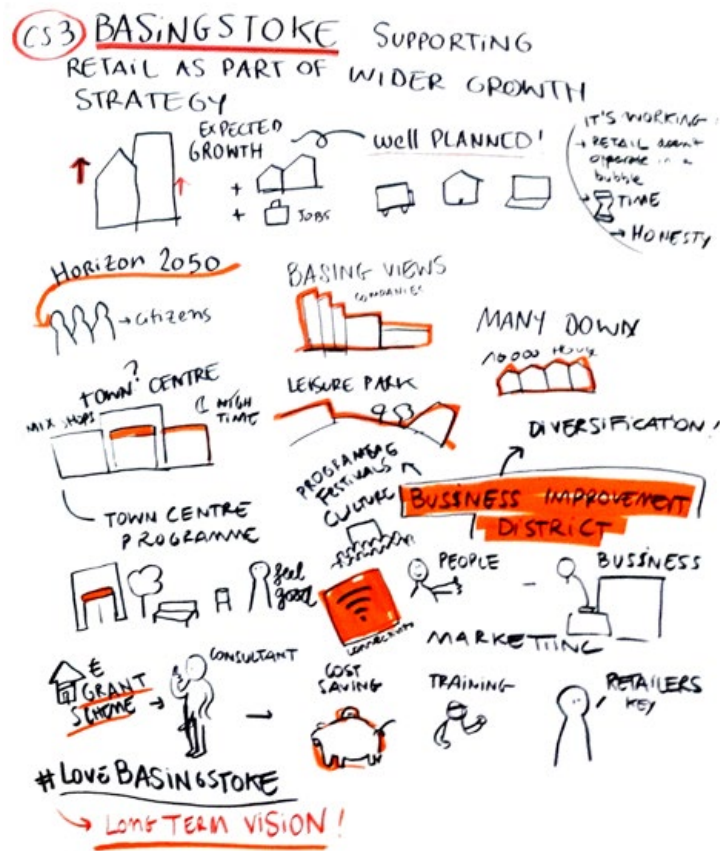 CS3 BASINGSTOKE SUPPORTING
RETAIL AS PART OF WIDER GROWTH
STRATEGY
EXPECTED
GROWTH
+
+ JOBS
Well PLANNED!
IT'S WORKING
→ RETAIL doesn't
operate in a
bubble
→ TIME
→ HONESTY
Horizon 2050
→ citizens
BASING VIEWS
COMPANIES
MANY DOWN
10 000 HOUSE
TOWN? CENTRE
MIX SHOPS
NIGH
TIME
LEISURE PARK
DIVERSIFICATION!
PROGRAMME
FESTIVALS
CULTURE
BUSINESS IMPROVEMENT
DISTRICT
TOWN CENTRE
PROGRAMME
feel
good
CONNECTIVITY
PEOPLE
-
BUSINESS
MARKETIING
€
GRANT
SCHEME →
CONSULTANT
→
COST
SAVING
TRAINING
RETAILERS
KEY
#LOVE BASINGSTOKE
→ LONG TERM VISION!